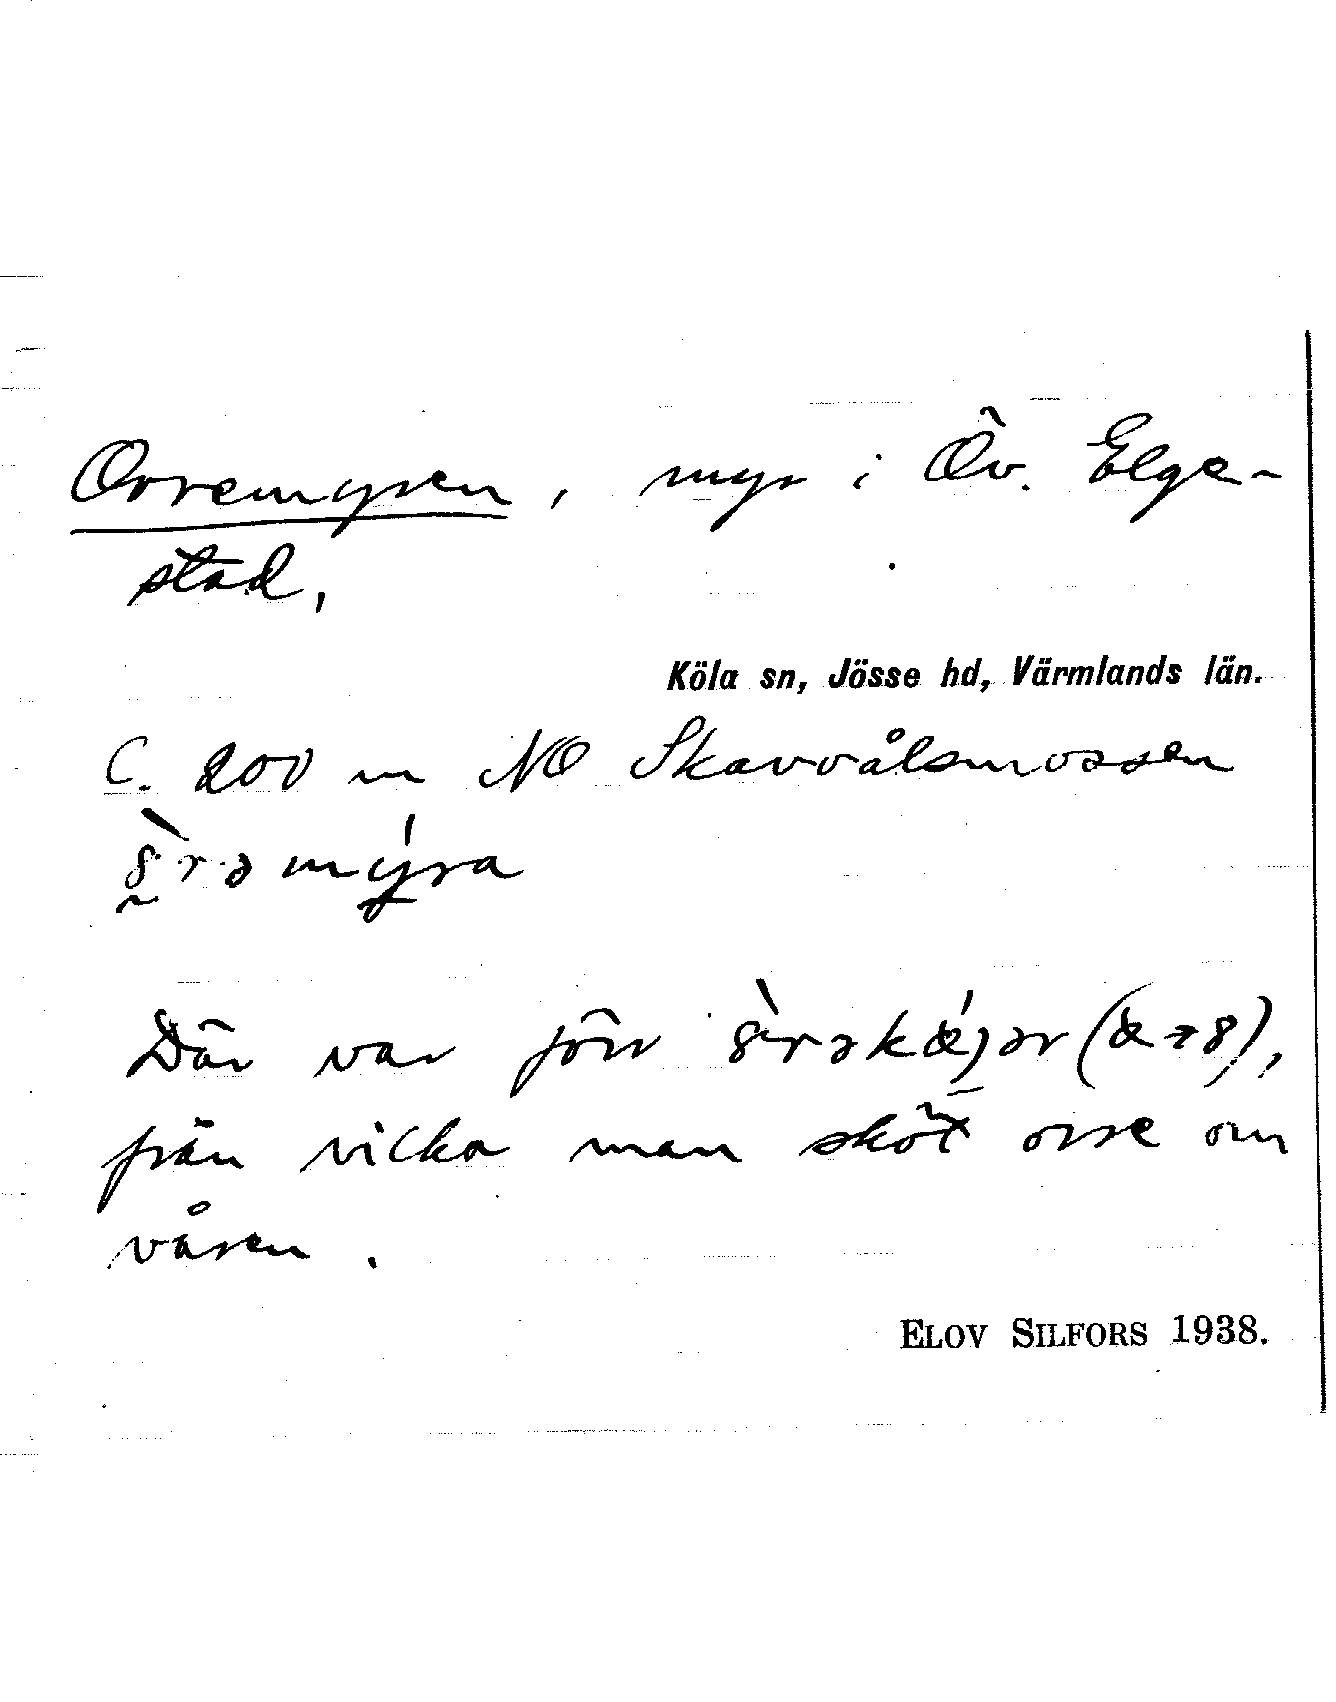 Orremyren, myr i Öv. Elge-
stad,
Köla sn, Jösse hd, Värmlands län.
C. 200 m NO Skavvålsmossen
Där var förr
från vicka man sköt orre om
våren.
ELOV SILFORS 1938.